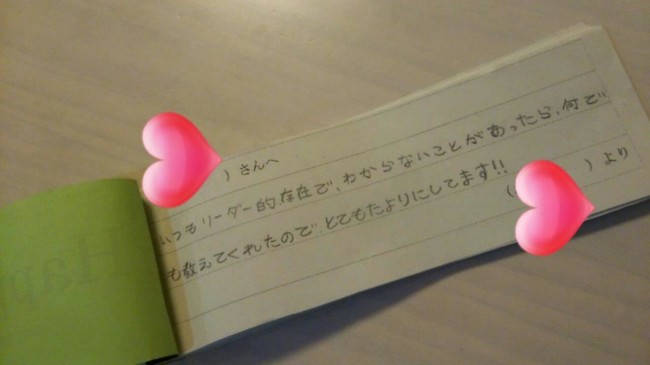 ）さんへ
いつもリーダー的存在で、わからないことがあったら、何で
も教えてくれたので とてもたよりにしてます!!
（ ）より